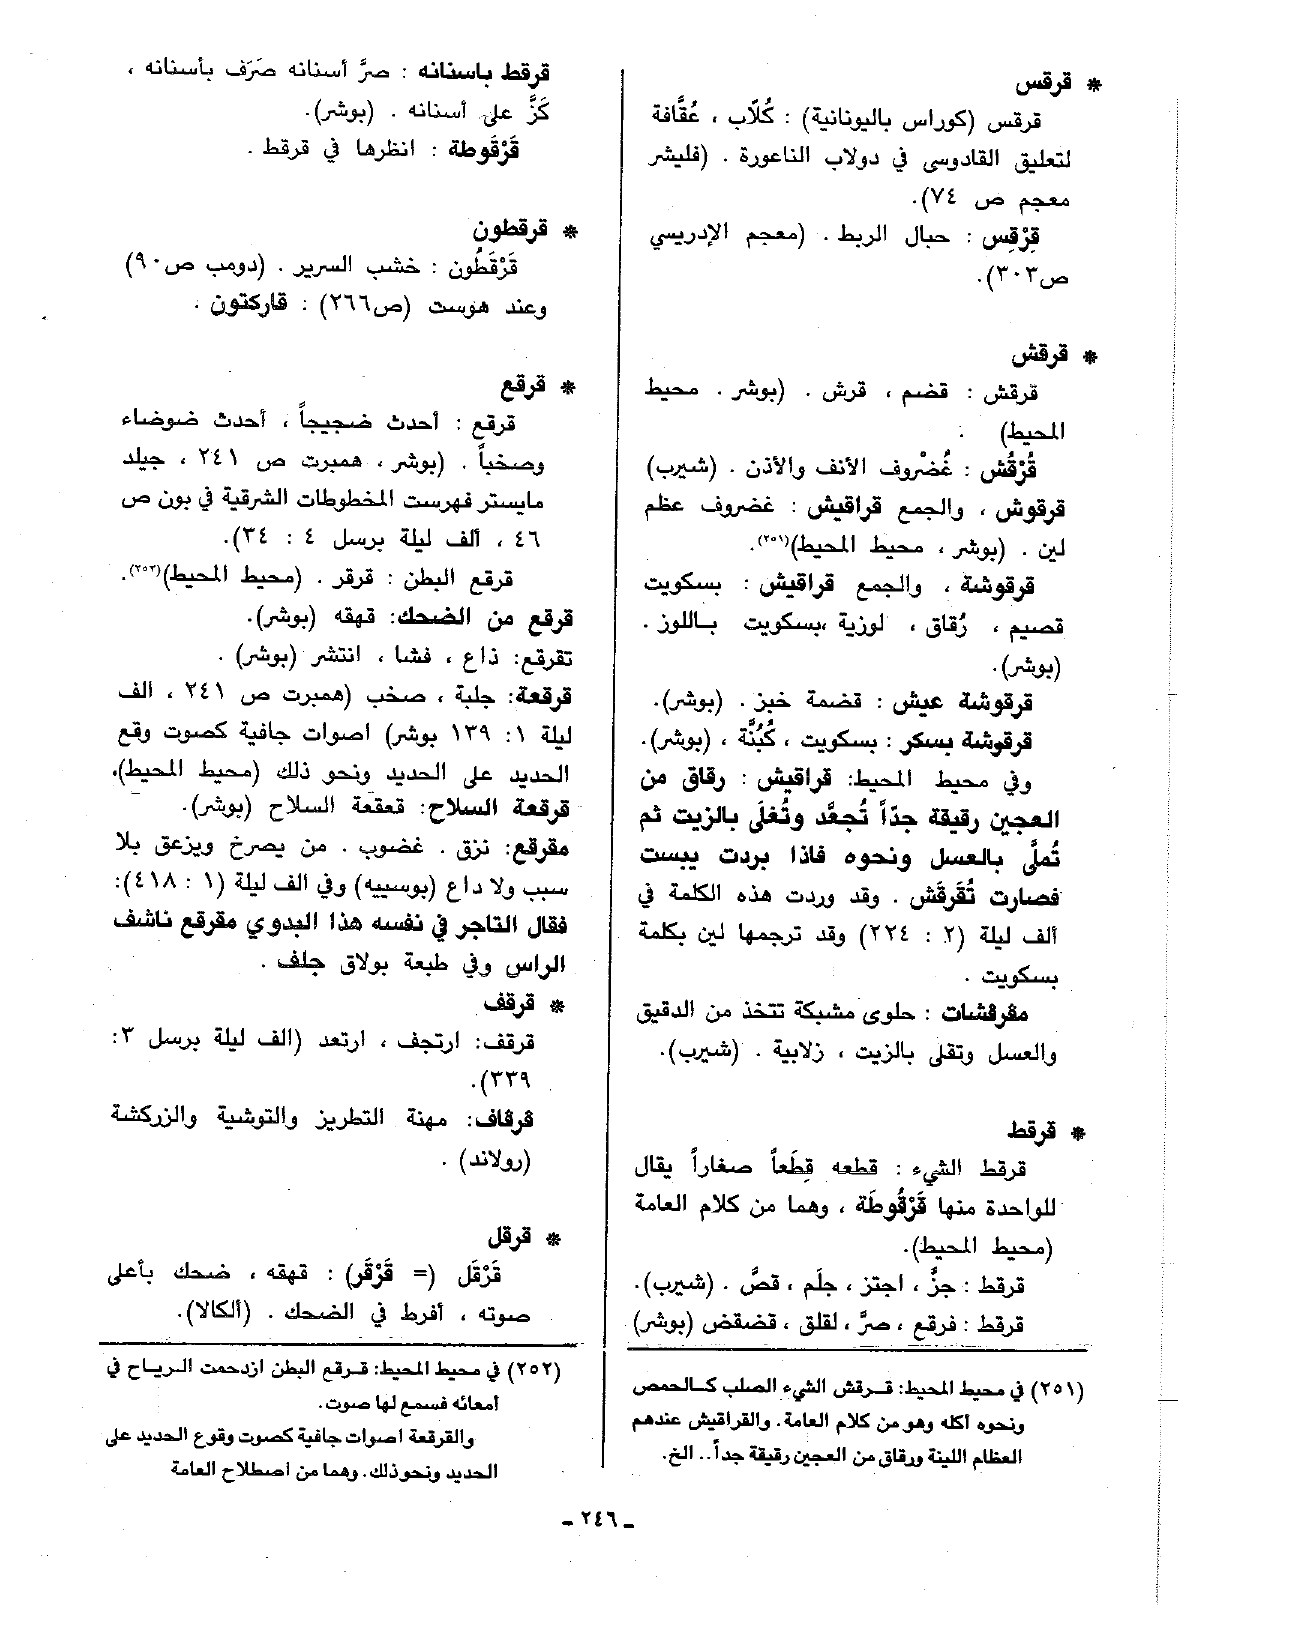 * قرقس
قرقس (كوراس باليونانية) : كُلّاب ، عُقَّافة
لتعليق القادوسي في دولاب الناعورة . (فليشر
معجم ص ٧٤).
قِرْقِس : حبال الربط . (معجم الإدريسي
ص٣٠٣).
* قرقش
قرقش : قضم ، قرش . (بوشر . محيط
المحيط) .
قُرْقُش : غُضْروف الأنف والأذن . (شيرب)
قرقوش ، والجمع قراقيش : غضروف عظم
لين . (بوشر ، محيط المحيط)(٢٥١).
قرقوشة ، والجمع قراقيش : بسكويت
قصيم ، رُقاق ، لوزية ،بسكويت باللوز .
(بوشر).
قرقوشة عيش : قضمة خبز . (بوشر).
قرقوشة بسكر : بسكويت ، كُبُنَّة ، (بوشر).
وفي محيط المحيط: قراقيش : رقاق من
العجين رقيقة جدّاً تُجعَّد وتُغلَى بالزيت ثم
تُملَّى بالعسل ونحوه فاذا بردت يبست
فصارت تُقَرقَش . وقد وردت هذه الكلمة في
ألف ليلة (٢ : ٢٢٤) وقد ترجمها لين بكلمة
بسكويت .
مقرقشات : حلوى مشبكة تتخذ من الدقيق
والعسل وتقلى بالزيت ، زلابية . (شيرب).
* قرقط
قرقط الشيء : قطعه قِطَعاً صغاراً يقال
للواحدة منها قَرْقُوطَة ، وهما من كلام العامة
(محيط المحيط).
قرقط : جزُّ ، اجتز ، جلَم ، قصَّ . (شيرب).
قرقط : فرقع ، صرَّ ، لقلق ، قضقض (بوشر)
(٢٥١) في محيط المحيط: قرقش الشيء الصلب كالحمص
ونحوه اكله وهو من كلام العامة. والقراقيش عندهم
العظام اللينة ورقاق من العجين رقيقة جداً.. الخ.
قرقط باسنانه : صرَّ أسنانه صَرَف بأسنانه ،
كَزَّ على أسنانه . (بوشر).
قَرْقَوطة : انظرها في قرقط .
* قرقطون
قَرْقَطُون : خشب السرير . (دومب ص٩٠)
وعند هوست (ص٢٦٦) : قاركتون .
* قرقع
قرقع : أحدث ضجيجاً ، أحدث ضوضاء
وصخباً . (بوشر ، همبرت ص ٢٤١ ، جيلد
مايستر فهرست المخطوطات الشرقية في بون ص
٤٦ ، ألف ليلة برسل ٤ : ٣٤).
قرقع البطن : قرقر . (محيط المحيط)(٢٥٢).
قرقع من الضحك: قهقه (بوشر).
تقرقع: ذاع ، فشا ، انتشر (بوشر) .
قرقعة: جلبة ، صخب (همبرت ص ٢٤١ ، الف
ليلة ١: ١٣٩ بوشر) اصوات جافية كصوت وقع
الحديد على الحديد ونحو ذلك (محيط المحيط).
قرقعة السلاح: قعقعة السلاح (بوشر).
مقرقع: نزق . غضوب . من يصرخ ويزعق بلا
سبب ولا داع (بوسييه) وفي الف ليلة (١ : ٤١٨):
فقال التاجر في نفسه هذا البدوي مقرقع ناشف
الراس وفي طبعة بولاق جلف .
* قرقف
قرقف: ارتجف ، ارتعد (الف ليلة برسل ٣:
٣٣٩).
قرقاف: مهنة التطريز والتوشية والزركشة
(رولاند) .
* قرقل
قَرْقَل (= قَرْقَر) : قهقه ، ضحك بأعلى
صوته ، أفرط في الضحك . (ألكالا).
(٢٥٢) في محيط المحيط: قرقع البطن ازدحمت الرياح في
أمعائه فسمع لها صوت.
والقرقعة اصوات جافية كصوت وقوع الحديد على
الحديد ونحوذلك. وهما من اصطلاح العامة
ـ ٢٤٦ ـ